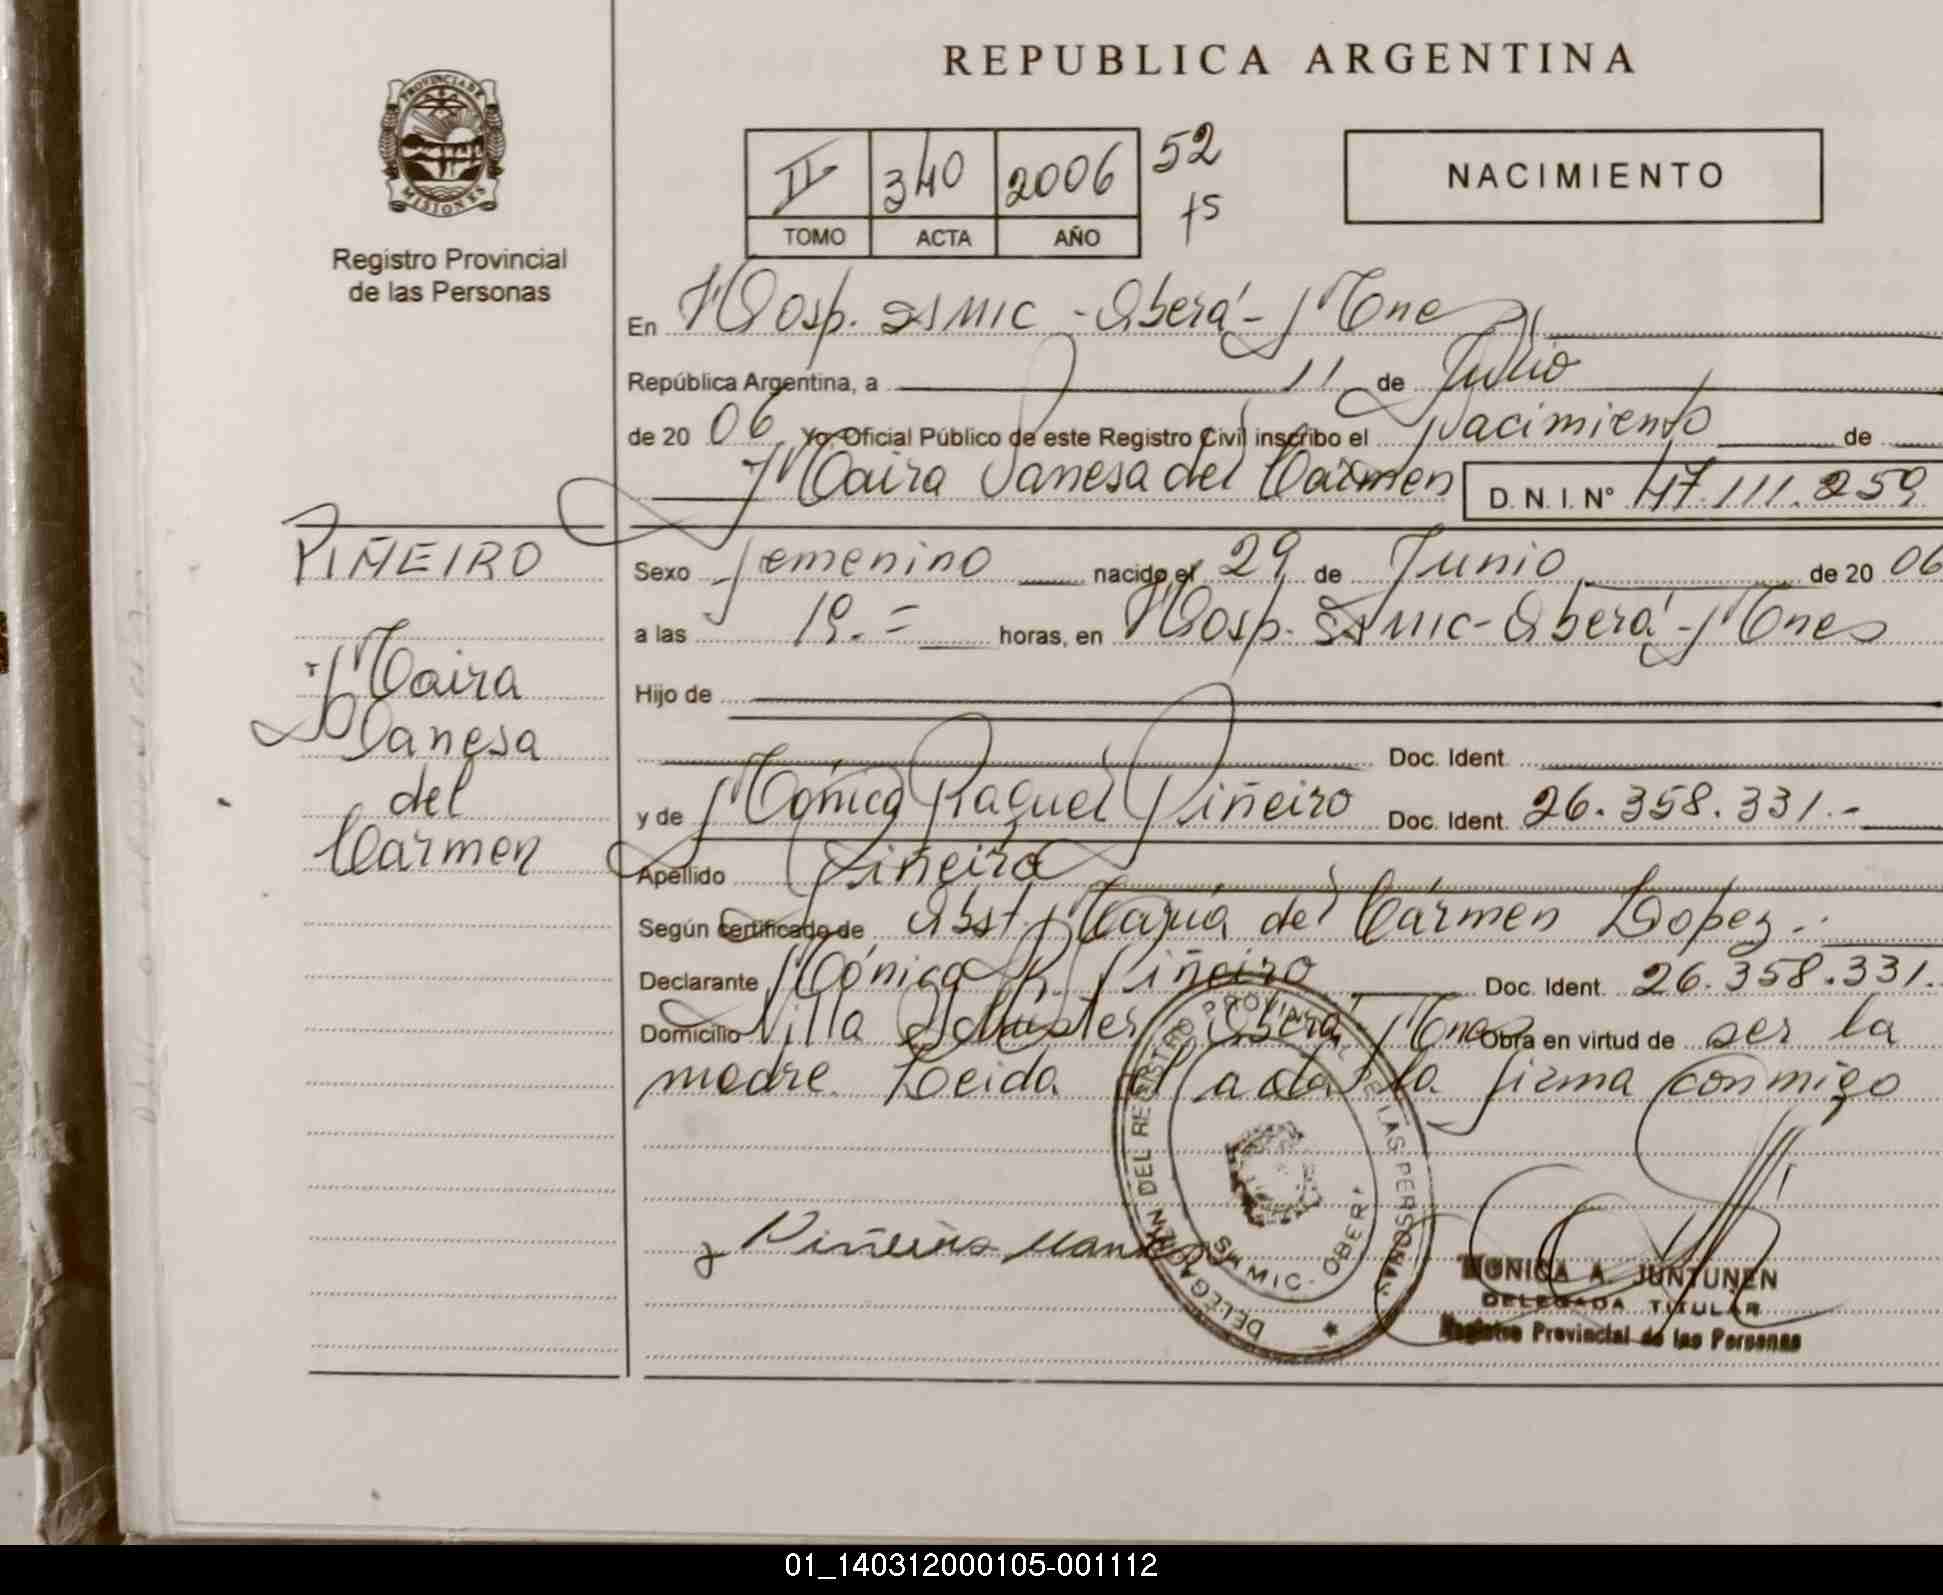 REPUBLICA ARGENTINA
PROVINCIA DE
MISIONES
Registro Provincial
de las Personas
II 340 2006 52
TOMO ACTA AÑO
NACIMIENTO
En Hosp. SAMIC - Oberá - Mnes
República Argentina, a 11 de Julio
de 20 06 Yo, Oficial Público de este Registro Civil inscribo el Nacimiento de
Maira Vanesa del Carmen D. N. I. Nº 47.111.259
PIÑEIRO
Maira
Vanesa
del
Carmen
Sexo femenino nacido el 29 de Junio de 20 06
a las 19.= horas, en Hosp. SAMIC - Oberá - Mnes
Hijo de
Doc. Ident.
y de Mónica Raquel Piñeiro Doc. Ident. 26.358.331.-
Apellido Piñeiro
Según certificado de Obst. María del Cármen Lopez.
Declarante Mónica R. Piñeiro Doc. Ident. 26.358.331.
Domicilio Villa Oberá Mnes Obra en virtud de ser la
madre. Leida el acta la firma conmigo
Piñeiro
DELEGACION DEL REGISTRO PROVINCIAL DE LAS PERSONAS
SAMIC - OBERA
MONICA A. JUNTUNEN
DELEGADA TITULAR
Registro Provincial de las Personas
01_140312000105-001112